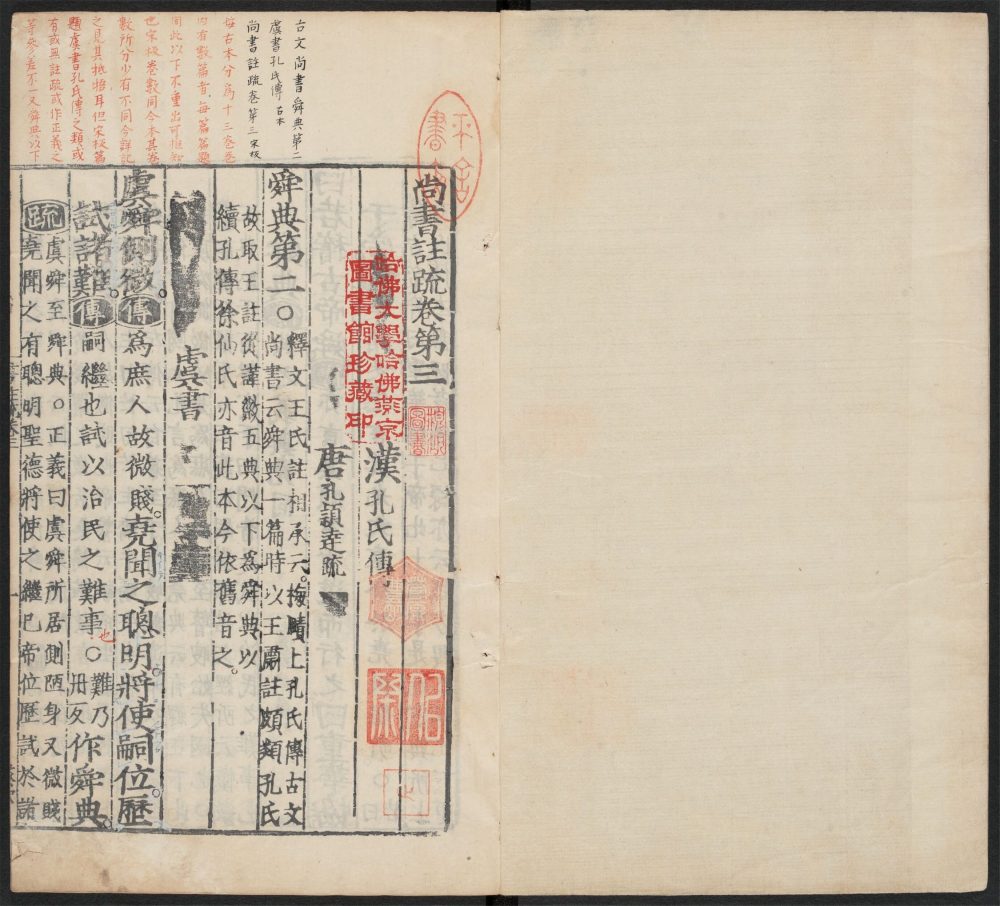 古文尚書舜典第二
虞書孔氏傳 古本
尚書註疏卷第三 宋板
每古本分為十三卷卷
內有數篇者每篇篇題
同此以下不重出可推知
也宋板卷數同今本其卷
數所分少有不同今詳記
之見其抵牾耳但宋板篇
題虞書孔氏傳之類或
有或無註疏或作正義之
等參差不一又舜典以下
尚書註疏卷第三
漢孔氏傳
唐孔穎達疏
哈佛大學哈佛燕京
圖書館珍藏印
舜典第二○釋文王氏註相承云梅賾上孔氏傳古文
尚書云舜典一篇時以王肅註頗類孔氏
故取王註從謹徽五典以下為舜典以
續孔傳徐仙民亦音此本今依舊音之。
虞書
虞舜側微。傳爲庶人故微賤。堯聞之聰明。將使嗣位。歷
試諸難。傳嗣繼也試以治民之難事也○難乃丹反作舜典。
疏虞舜至舜典。○正義曰虞舜所居側陋身又微賤
堯聞之有聰明聖德將使之繼已帝位歷試於諸